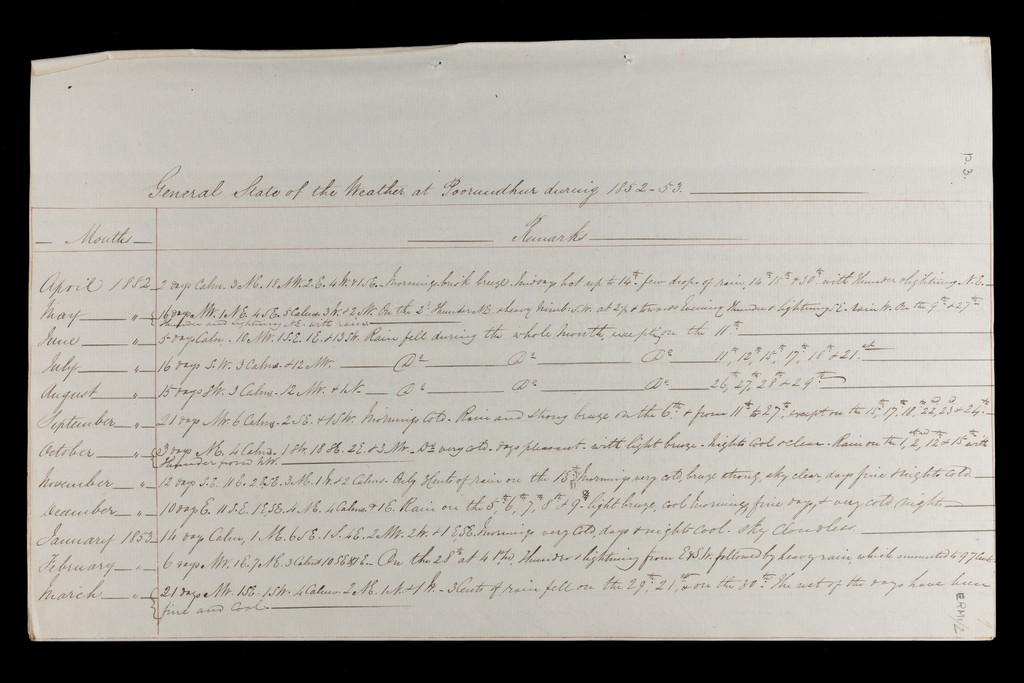 General State of the Weather at Poorundhur during 1852-53.
Months Remarks
April 1852 2 days Calm. 3 N.E. 18 N.W. 2 E. 4 W. & 1 S.E. Mornings brisk breeze. Middays hot up to 14th. few drops of rain, 14th 15th & 30th with thunder & lightning N.E.
May " 16 days N.W. 1 N.E. 4 S.E. 5 Calms 3 W. & 2 S.W. On the 2d thunder N.E. & heavy S.W. at 2 p & towards Evening thunder & lightning E. rain W. On the 9th & 27th
thunder and lightning N.E. with rain
June " 5 days Calm. W. 1 S.E. 1 E. & 13 S.W. Rain fell during the whole month, except on the 11th
July " 16 days S.W. 3 Calms & 12 N.W. Do Do Do 11th, 12th, 15th, 17th, 18th & 21st
August " 15 days S.W. 3 Calms. 12 N.W. & 1 N. Do Do Do 26th, 27th, 28th & 29th
September " 21 days N.W. 6 Calms. 2 S.E. & 1 S.W. Mornings cold. Rain and strong breeze on the 6th & from 11th to 27th except on the 15th, 17th, 18th, 22d, 23d & 24th
October " 3 days N.E. 4 Calms. 1 W. 18 2 E. & 3 N.W. Do very cold. days pleasant. with light breeze. Nights Cool & clear. Rain on the 1st, 2nd, 12th & 15th with
thunder from N.W.
November " 12 days S.E. 11 E. 2 3 N.E. 1 W. & 2 Calms. Only 1 Cent of rain on the 15th. Mornings very cold, breeze strong, sky clear, days fine & nights cold
December " 10 days E. 11 S.E. 1 4 N.E. 4 Calms & 1 E. Rain on the 5th, 6th, 7th, 8th & 9th. light breeze, cool Mornings, fine days, & very cold nights
January 1853 14 days Calm, 1 N.E. 6 S.E. 1 S. 4 E. 2 N.W. 2 W. & 1 E.S.E. Mornings very cold, days & nights cool. Sky Cloudless
February " 6 days N.W. 1 E. 7 N.E. 3 Calms 10 S.E. & 1 E. On the 28th at 4 P.M. thunder & lightning from E & S.W. followed by heavy rain, which amounted to 97 Cents
March " 21 days N.W. 1 S.E. 1 S.W. 4 Calms. 2 N.E. 1 N. & 1 W. 3 Cents of rain fell on the 29th, 21, & on the 30th. The rest of the days have been
fine and Cool
p. 3.